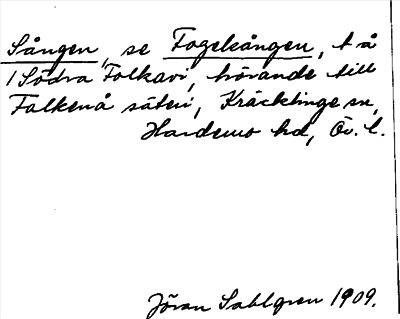 Sången, se Fogelsången, t å
i Södra Folkavi, hörande till
Falkenå säteri, Kräcklinge sn,
Hardemo hd, Ör. l.
Jöran Sahlgren 1909.